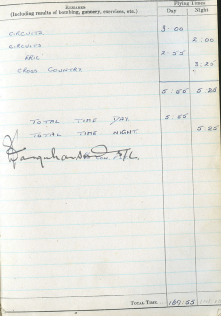 REMARKS
(Including results of bombing, gunnery, exercises, etc.)
Flying Times
Day Night
CIRCUITS 3.00
CIRCUITS 2.00
2.55
CROSS COUNTRY 3.25
5.55 5.25
TOTAL TIME DAY 5.55
TOTAL TIME NIGHT 5.25
TOTAL TIME 169.55